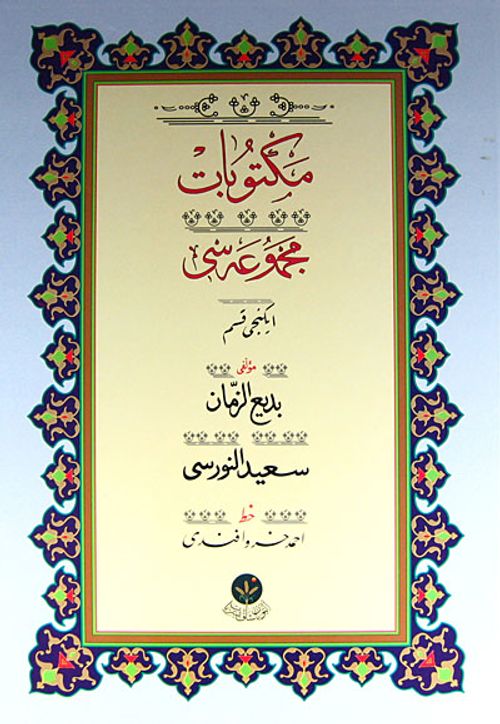 مَكْتُوبَاتْ
مَجْمُوعَه سِی
ایكنجی قسم
مؤلفی
بدیع الزمّان
سعید النورسی
خط
احمد خسرو افندی